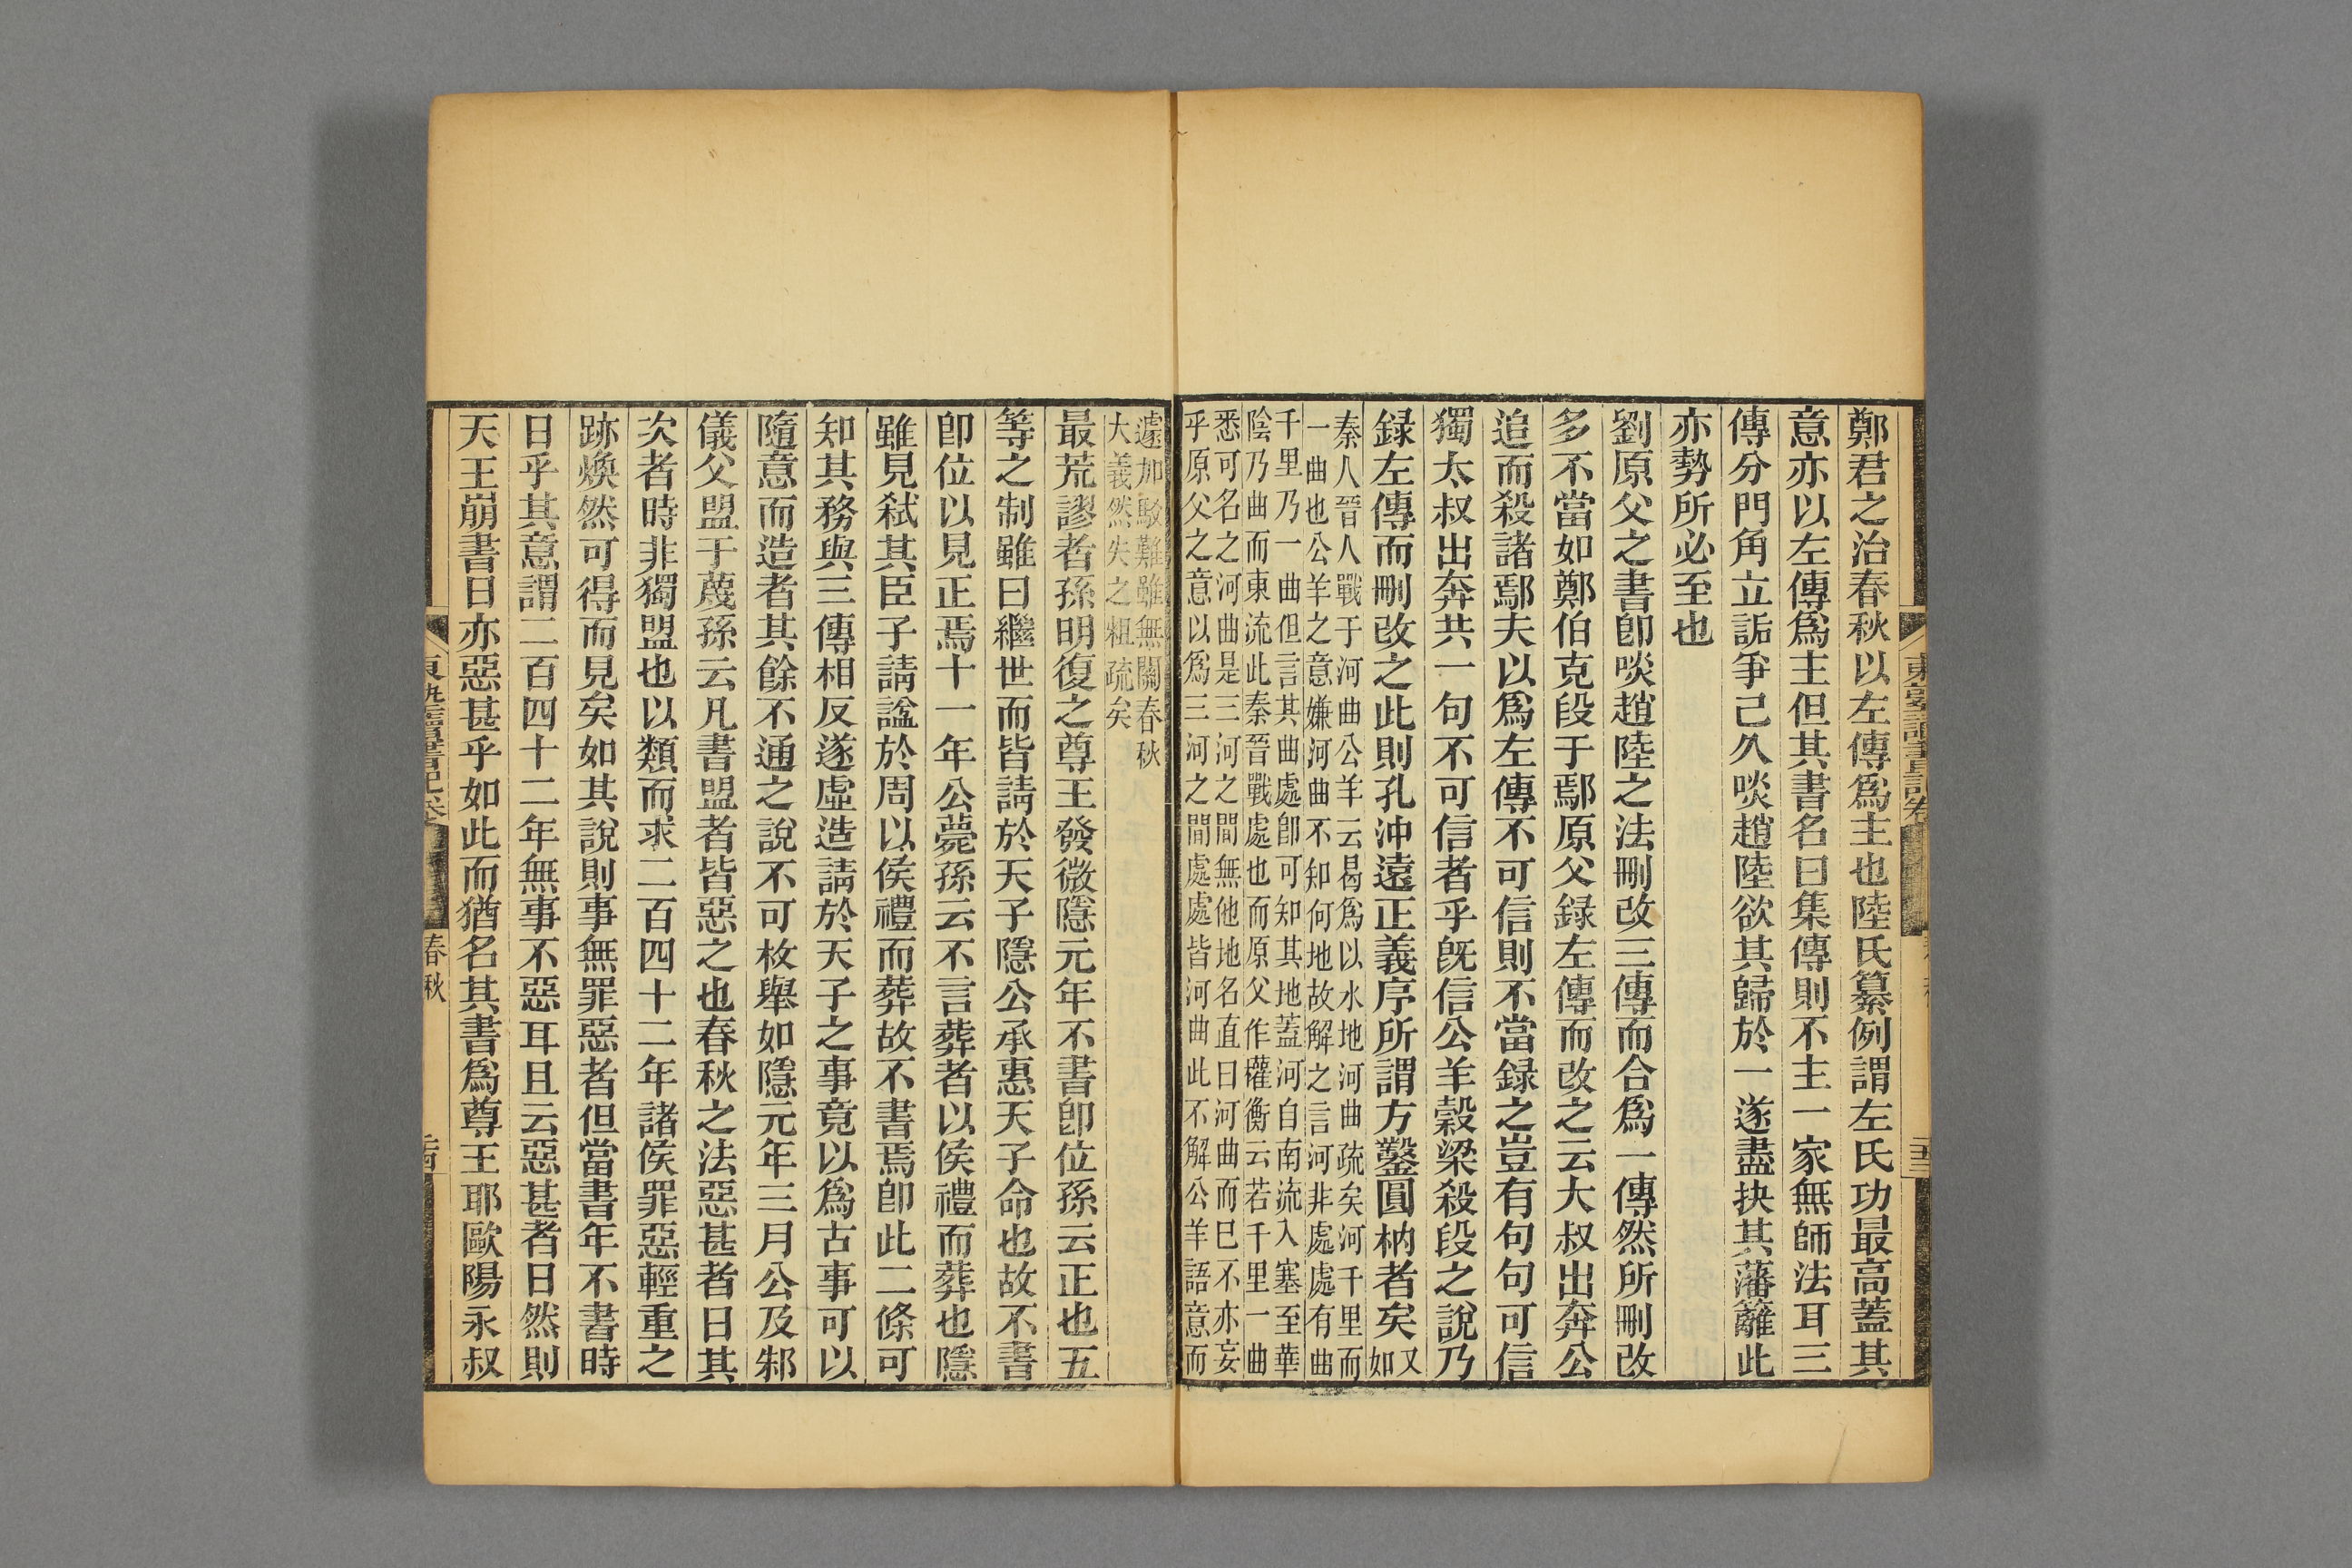 鄭君之治春秋以左傳爲主也陸氏纂例謂左氏功最高蓋其
意亦以左傳爲主但其書名曰集傳則不主一家無師法耳三
傳分門角立詬爭已久啖趙陸欲其歸於一遂盡抉其藩籬此
亦勢所必至也
劉原父之書卽啖趙陸之法刪改三傳而合爲一傳然所刪改
多不當如鄭伯克段于鄢原父録左傳而改之云大叔出奔公
追而殺諸鄢夫以爲左傳不可信則不當録之豈有句句可信
獨太叔出奔共一句不可信者乎旣信公羊穀梁殺段之說乃
録左傳而刪改之此則孔沖遠正義序所謂方鑿圓枘者矣又
如
秦人晉人戰于河曲公羊云曷爲以水地河曲疏矣河千里而
一曲也公羊之意嫌河曲不知何地故解之言河非處處有曲
千里乃一曲但言其曲處卽可知其地蓋河自南流入塞至華
陰乃曲而東流此秦晉戰處也而原父作權衡云若千里一曲
悉可名之河曲是三河之閒無他地名直曰河曲而巳不亦妄
乎原父之意以爲三河之閒處處皆河曲此不解公羊語意而
遽加駮難雖無關春秋
大義然失之粗疏矣
最荒謬者孫明復之尊王發微隱元年不書卽位孫云正也五
等之制雖曰繼世而皆請於天子隱公承惠天子命也故不書
卽位以見正焉十一年公薨孫云不言葬者以侯禮而葬也隱
雖見弑其臣子請諡於周以侯禮而葬故不書焉卽此二條可
知其務與三傳相反遂虛造請於天子之事竟以爲古事可以
隨意而造者其餘不通之說不可枚舉如隱元年三月公及邾
儀父盟于蔑孫云凡書盟者皆惡之也春秋之法惡甚者日其
次者時非獨盟也以類而求二百四十二年諸侯罪惡輕重之
跡煥然可得而見矣如其說則事無罪惡者但當書年不書時
日乎其意謂二百四十二年無事不惡耳且云惡甚者日然則
天王崩書日亦惡甚乎如此而猶名其書爲尊王耶歐陽永叔
春秋